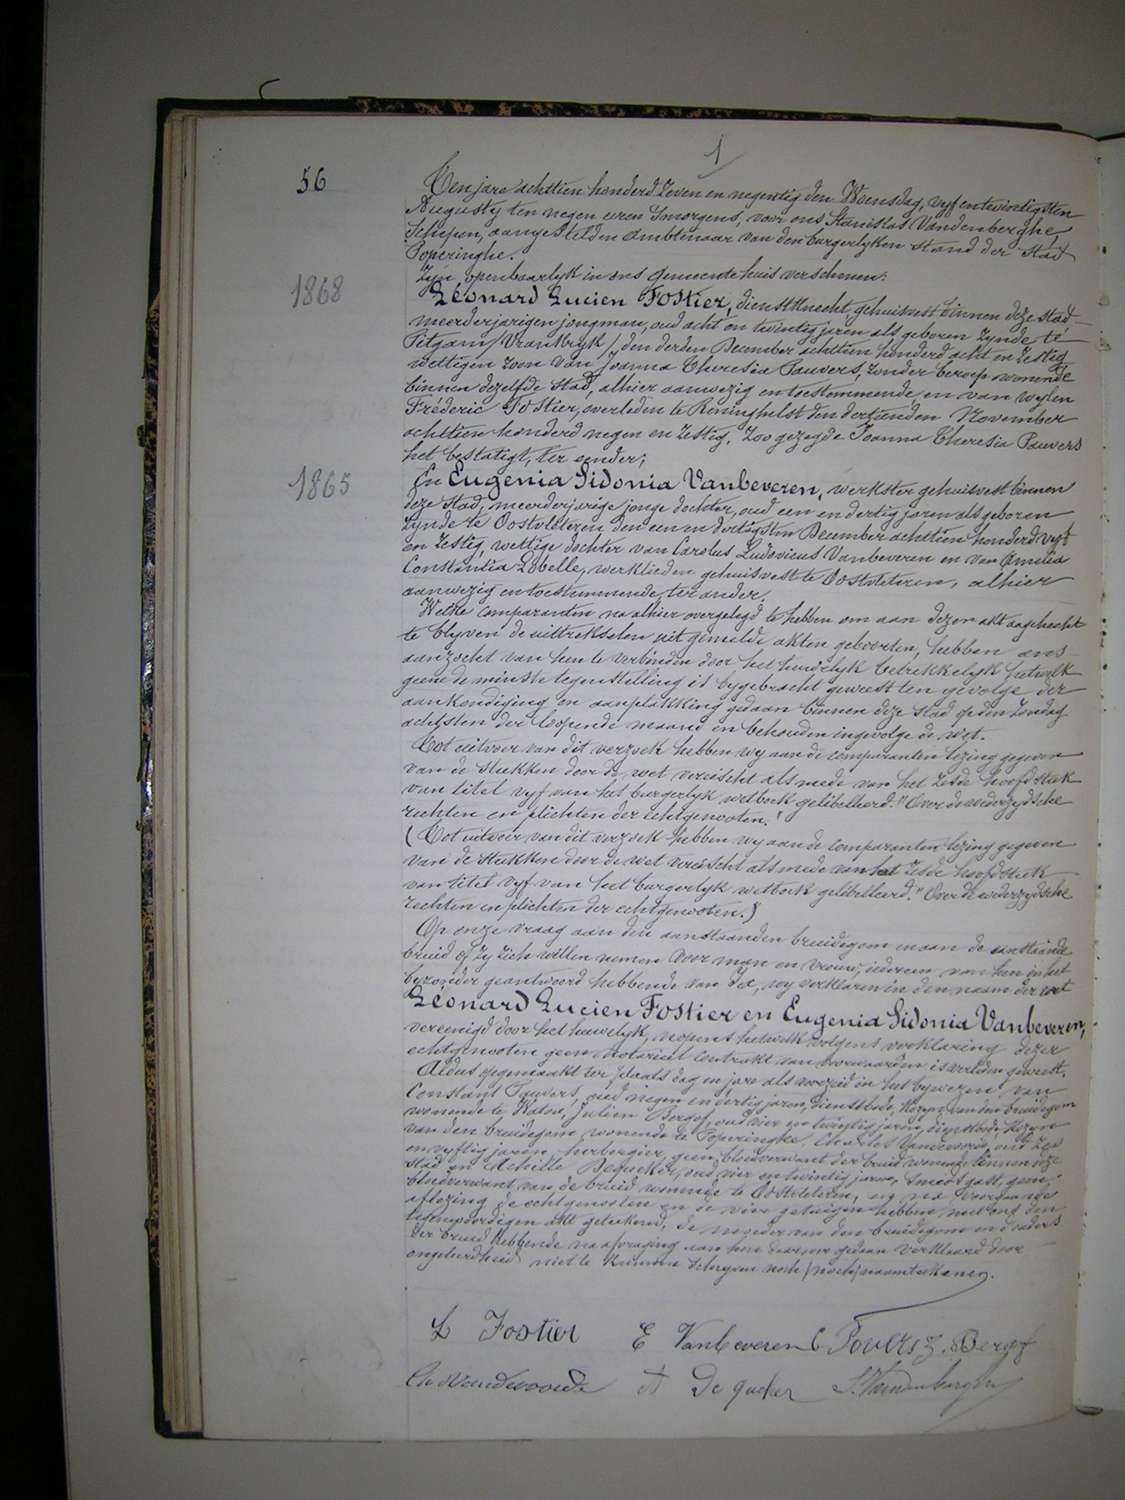 1
56
Ten jare achttien honderd Zeven en negentig den Woensdag, vyf en twintigsten
Augusty ten negen uren Smorgens, voor ons Stanislas Vandenberghe,
Schepen, aangestelden Ambtenaar van den burgerlyken stand der Stad
Poperinghe.
Zyn openbaarlyk in ons Gemeentehuis verschenen:
1868
Léonard Lucien Fostier, dienstknecht, gehuisvest binnen deze stad
meerderjarigen jongman, oud acht en twintig jaren als geboren Zynde te
Pitgam (Vrankryk), den derden December achttien honderd acht en Zestig
wettigen Zoon van Joanna Theresia Pauvers, zonder beroep wonende
binnen dezelfde stad, alhier aanwezig en toestemmende, en van wylen
Fréderic Fostier, overleden te Reninghelst den dertienden November
achttien honderd negen en Zestig, Zoo gezegde Joanna Theresia Pauvers
het bestatigt, ter eender;
1865
En Eugenia Sidonia Vanbeveren, werkster gehuisvest binnen
deze Stad, meerderjarige jonge dochter, oud een en dertig jaren als geboren
Zynde te Oostvleteren den een en dertigsten December achttien honderd vyf
en Zestig, wettige dochter van Carolus Ludovicus Vanbeveren en van Amelia
Constantia Lobelle, werklieden gehuisvest te Oostvleteren, alhier
aanwezig en toestemmende, ter ander.
Welke Comparanten na alhier overgelegd te hebben om aan dezen akt aagehecht
te blyven de uittrekselen uit gemelde akten geboorten, hebben ons
aanzocht van hen te verbinden door het huwelyk betrekkelyk hetwelk
geene de minste tegenstelling is bygebracht geweest ten gevolge der
aankondiging en aanplakking gedaan binnen deze stad op den Zondag
achtsten der loopende maand en behouden ingevolge de wet.
Tot uitvoer van dit verzoek hebben wy aan de comparanten lezing gegeven
van de stukken door de wet vereischt als mede van het Zesde hoofdstuk
van titel vyf van het burgerlyk wetboek gelibelleerd: "Over de wederzydsche
rechten en plichten der Echtgenooten."
(Tot uitvoer van dit verzoek hebben wy aan de Comparanten lezing gegeven
van de stukken door de wet vereischt als mede van het Zesde hoofdstuk
van titel vyf van het burgerlyk wetboek gelibelleerd: "Over de wederzydsche
rechten en plichten der echtgenooten.")
Op onze vraag aan den aanstaanden bruidegom en aan de aanstaande
bruid of Zy Zich willen nemen voor man en vrouw, iedereen van hen in het
byzonder geantwoord hebbende van Ja, wy verklaren in den naam der wet
Léonard Lucien Fostier en Eugenia Sidonia Vanbeveren,
vereenigd door het huwelyk, nopens hetwelk volgens verklaring dezer
echtgenooten geen notarieel contrakt van voorwaarden is verleden geweest.
Aldus opgemaakt ter plaats dag en jare als voorzeid in het bywezen van
Constant Pauvers, oud negen en dertig jaren, dienstbode, Kozyn van den bruidegom
wonende te Watou, Julien Bergof, oud vier en twintig jaren, dienstbode, Kozyn
van den bruidegom wonende te Poperinghe, Charles Vandevoorde, oud Zes
en vyftig jaren, herbergier, geen bloedverwant der bruid wonende binnen deze
stad en Achille Dequeker, oud vier en twintig jaren, smedsgast, geen
bloedverwant van de bruid wonende te Oostvleteren, en na voorgaande
aflezing de echtgenooten en de vier getuigen hebben met ons den
tegenwoordigen akt geteekend, de moeder van den bruidegom en d'ouders
der bruid hebbende na afvraging aan hen daarover gedaan verklaard door
ongeleerdheid niet te kunnen schryven noch (noch) naamteekenen.
L Fostier E Vanbeveren C Pouvers J. Bergof
Ch Vandevoorde A De queker S. Vandenberghe